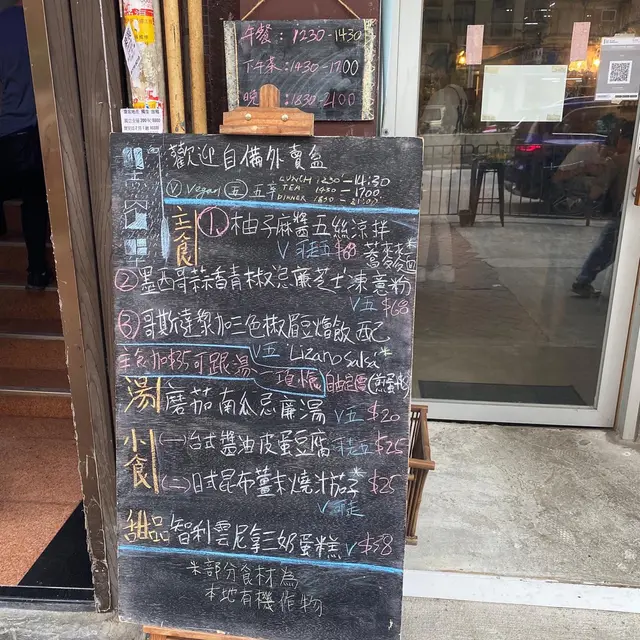 午餐：1230-1430
下午茶：1430-1700
晚：1830-2100
歡迎自備外賣盒
Ⓥ Vegan 五 五辛
LUNCH 1230-14:30
TEA 1430-1700
DINNER 1830-21:00
主食
① 柚子麻醬五絲涼拌
V 可走五 $68 蕎麥麵
② 墨西哥蒜香青椒忌廉芝士凍意粉
V五 $68
③ 哥斯達黎加三色椒眉豆燴飯配
V五 Lizano Salsa*
主食加$5可跟湯
自由定價
湯 蘑菇南瓜忌廉湯 V五 $20
小食
(一) 台式醬油皮蛋豆腐 可走五 $25
(二) 日式昆布薑末燒汁茄子* $25
V 可走
甜品 智利雲尼拿三奶蛋糕 V $38
*部分食材為
本地有機作物